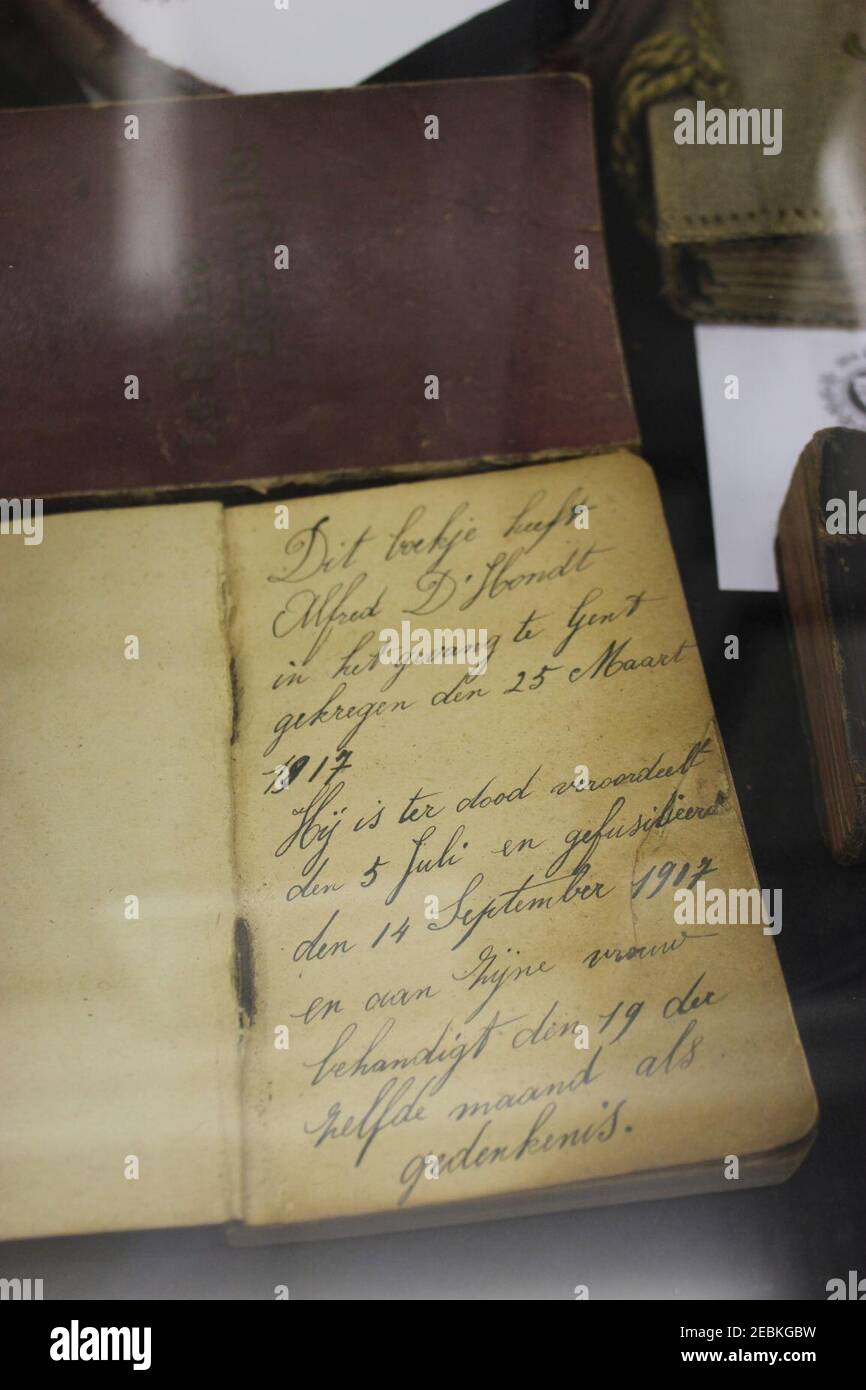 Dit boekje heeft
Alfred D'Hondt
in het gevang te Gent
gekregen den 25 Maart
1917
Hij is ter dood veroordeelt
den 5 Juli en gefusilieerd
den 14 September 1917
en aan zijne vrouw
behandigt den 19 der
zelfde maand als
gedenkenis.
alamy
Image ID: 2EBKGBW
www.alamy.com